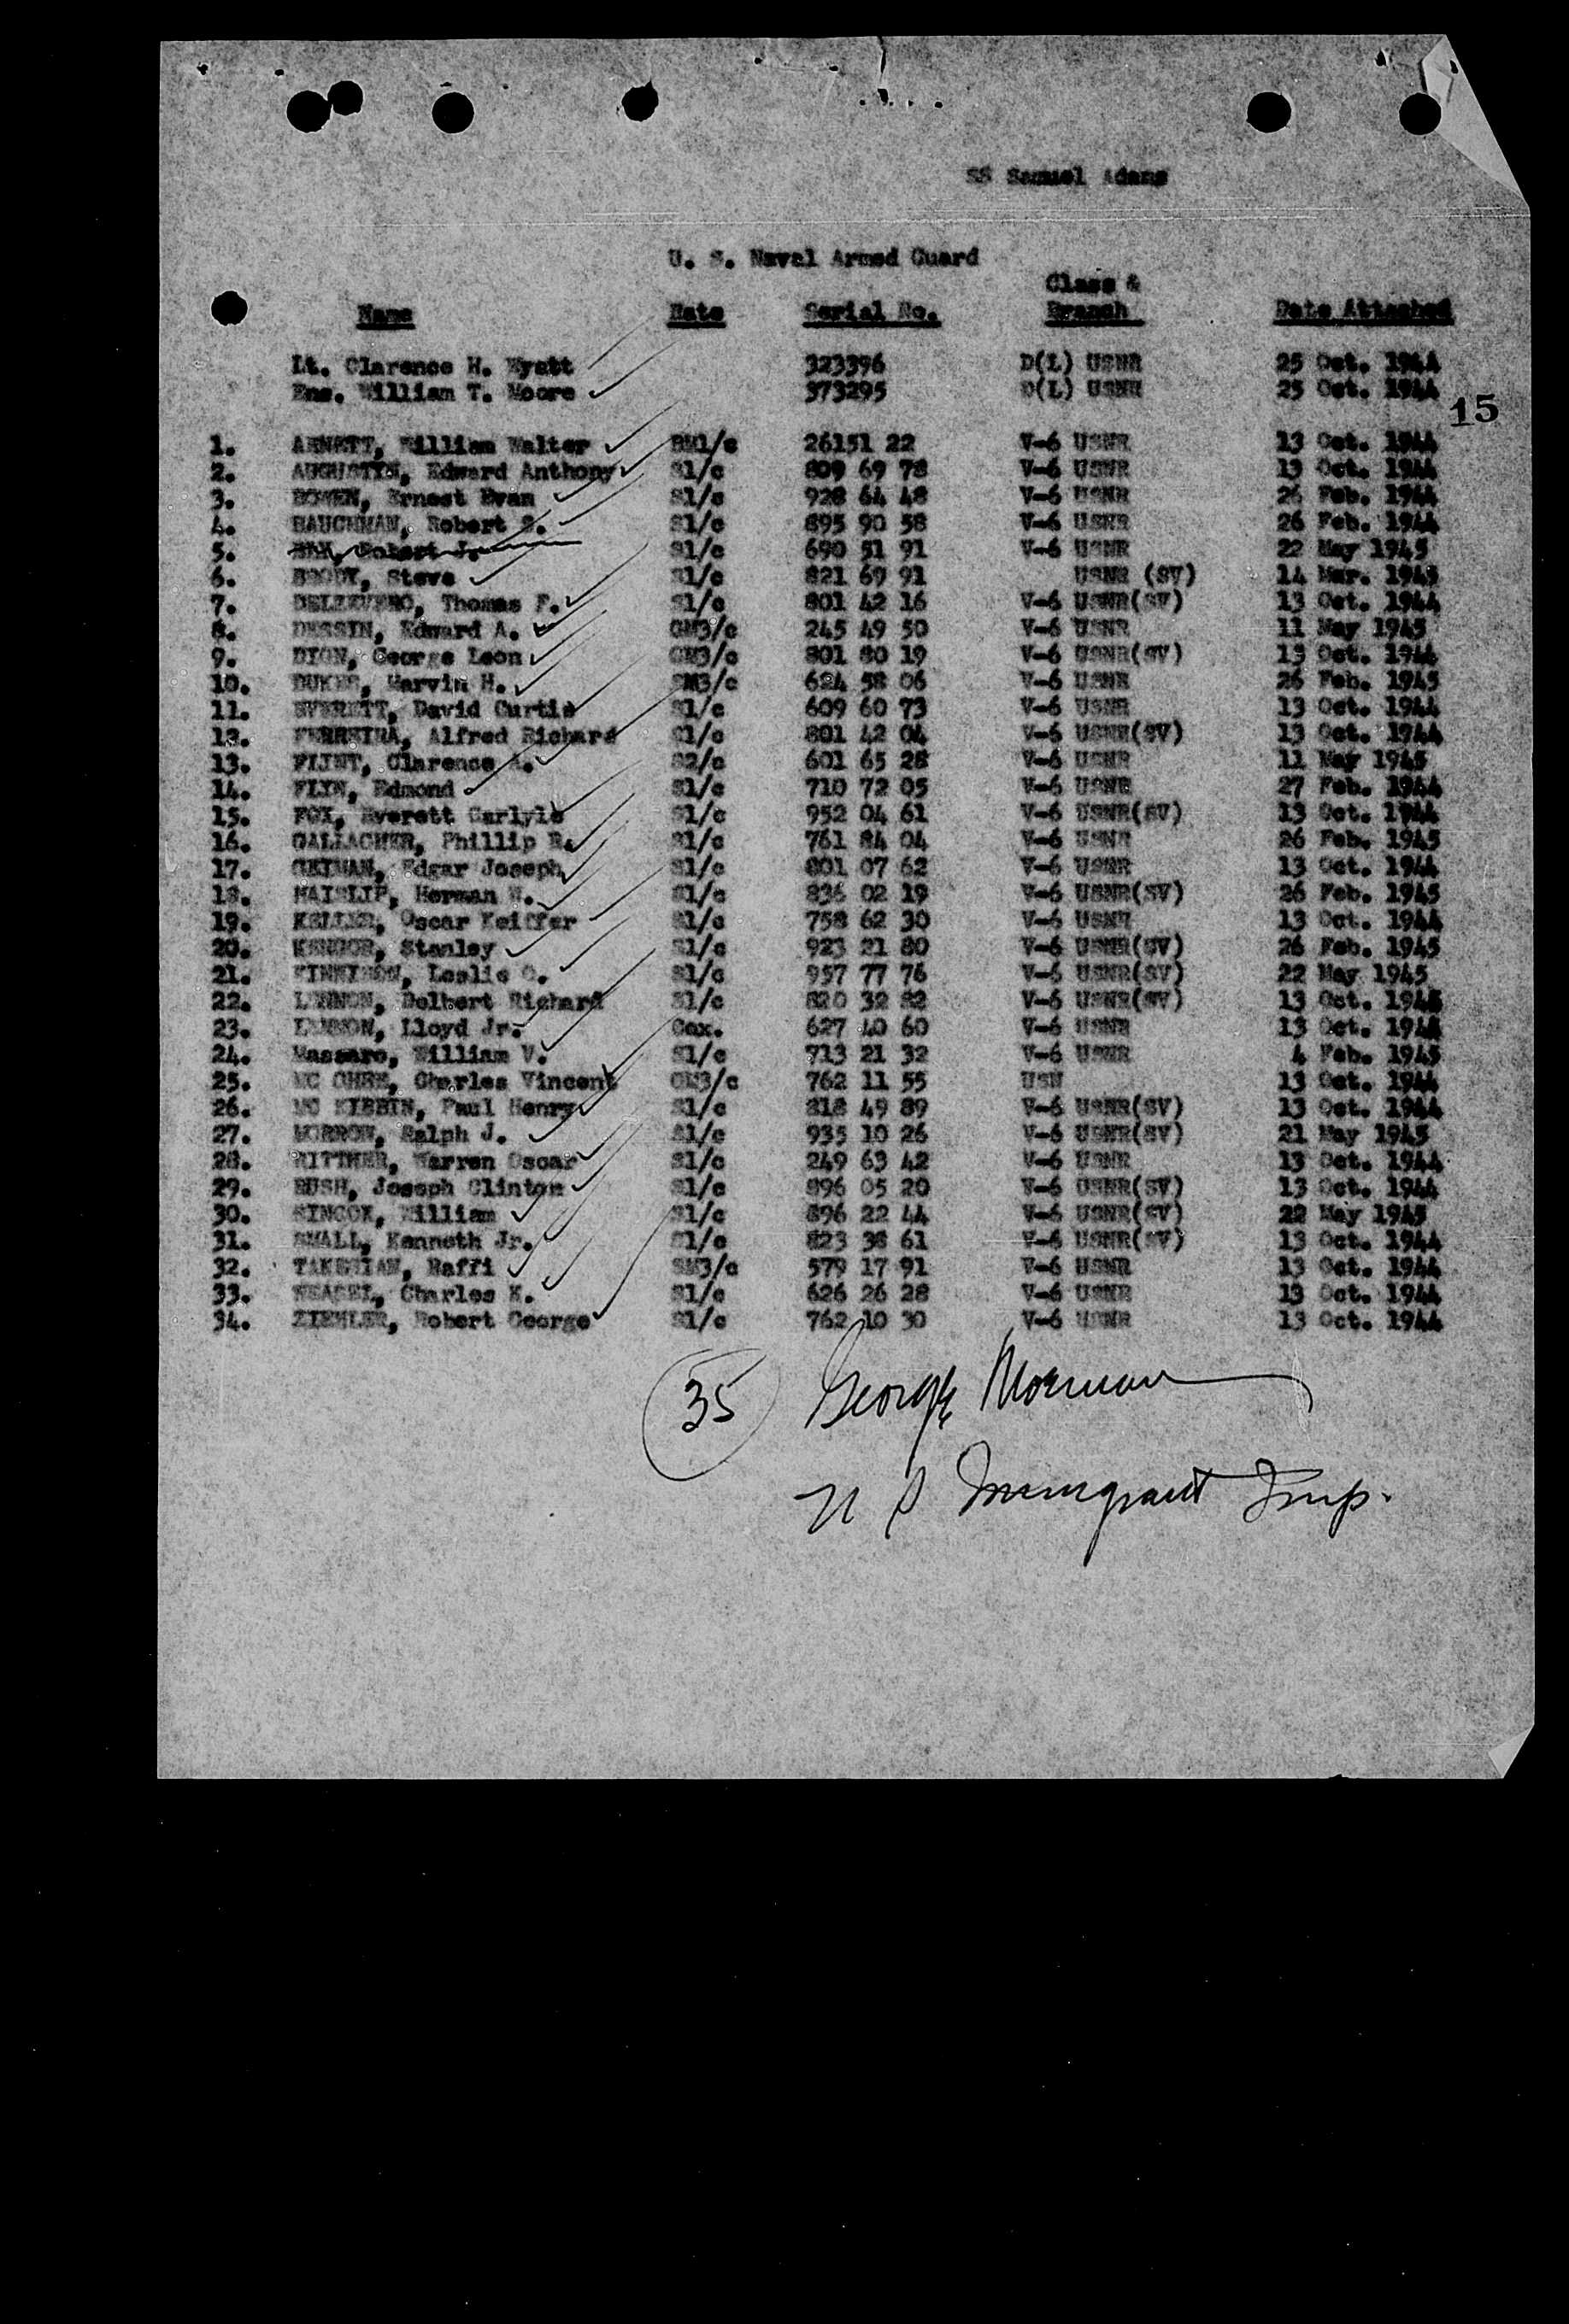 SS Samuel Adams
U. S. Naval Armed Guard
Class &
Name Rate Serial No. Branch Date Attached
Lt. Clarence H. Wyatt 323396 D(L) USNR 25 Oct. 1944
Ens. William T. Moore 373295 D(L) USNR 25 Oct. 1944
15
1. ARNETT, William Walter BM1/c 26151 22 V-6 USNR 13 Oct. 1944
2. AUGUSTYN, Edward Anthony S1/c 809 69 78 V-6 USNR 13 Oct. 1944
3. BOWEN, Ernest Evan S1/c 928 64 48 V-6 USNR 26 Feb. 1944
4. BAUCHMAN, Robert S. S1/c 895 90 58 V-6 USNR 26 Feb. 1944
5. Robert J. S1/c 690 51 91 V-6 USNR 22 May 1945
6. BRODY, Steve S1/c 821 69 91 USNR (SV) 14 Mar. 1945
7. Thomas F. S1/c 801 42 16 V-6 USNR(SV) 13 Oct. 1944
8. DESSIN, Edward A. GM3/c 245 49 50 V-6 USNR 11 May 1945
9. DION, George Leon GM3/c 801 80 19 V-6 USNR(SV) 13 Oct. 1944
10. DUKES, Marvin H. 624 58 06 V-6 USNR 26 Feb. 1945
11. EVERETT, David Curtis S1/c 609 60 73 V-6 USNR 13 Oct. 1944
12. FERREIRA, Alfred Richard S1/c 801 42 04 V-6 USNR(SV) 13 Oct. 1944
13. FLINT, Clarence A. S2/c 601 65 28 V-6 USNR 11 May 1945
14. FLYN, Edmond S1/c 710 72 05 V-6 USNR 27 Feb. 1944
15. FOX, Everett Carlyle S1/c 952 04 61 V-6 USNR(SV) 13 Oct. 1944
16. GALLAGHER, Phillip R. S1/c 761 84 04 V-6 USNR 26 Feb. 1945
17. GETMAN, Edgar Joseph S1/c 801 07 62 V-6 USNR 13 Oct. 1944
18. HAISLIP, Herman W. S1/c 836 02 19 V-6 USNR(SV) 26 Feb. 1945
19. KELLER, Oscar Keiffer S1/c 758 62 30 V-6 USNR 13 Oct. 1944
20. Stanley S1/c 923 21 80 V-6 USNR(SV) 26 Feb. 1945
21. Leslie O. S1/c 957 77 76 V-6 USNR(SV) 22 May 1945
22. Delbert Richard S1/c 820 32 82 V-6 USNR(SV) 13 Oct. 1945
23. Lloyd Jr. Cox. 627 40 60 V-6 USNR 13 Oct. 1944
24. Massaro, William V. S1/c 713 21 32 V-6 USNR 4 Feb. 1945
25. Charles Vincent GM3/c 762 11 55 USN 13 Oct. 1944
26. MC KIBBIN, Paul Henry S1/c 818 49 89 V-6 USNR(SV) 13 Oct. 1944
27. MORROW, Ralph J. S1/c 935 10 26 V-6 USNR(SV) 21 May 1945
28. RITTMER, Warren Oscar S1/c 249 63 42 V-6 USNR 13 Oct. 1944
29. RUSH, Joseph Clinton S1/c 896 05 20 V-6 USNR(SV) 13 Oct. 1944
30. SINCOX, William S1/c 896 22 44 V-6 USNR(SV) 22 May 1945
31. SMALL, Kenneth Jr. S1/c 823 38 61 V-6 USNR(SV) 13 Oct. 1944
32. Raffi SM3/c 579 17 91 V-6 USNR 13 Oct. 1944
33. Charles K. S1/c 626 26 28 V-6 USNR 13 Oct. 1944
34. ZIEHLER, Robert George S1/c 762 10 30 V-6 USNR 13 Oct. 1944
35 George Morman
U S Immigrant Insp.